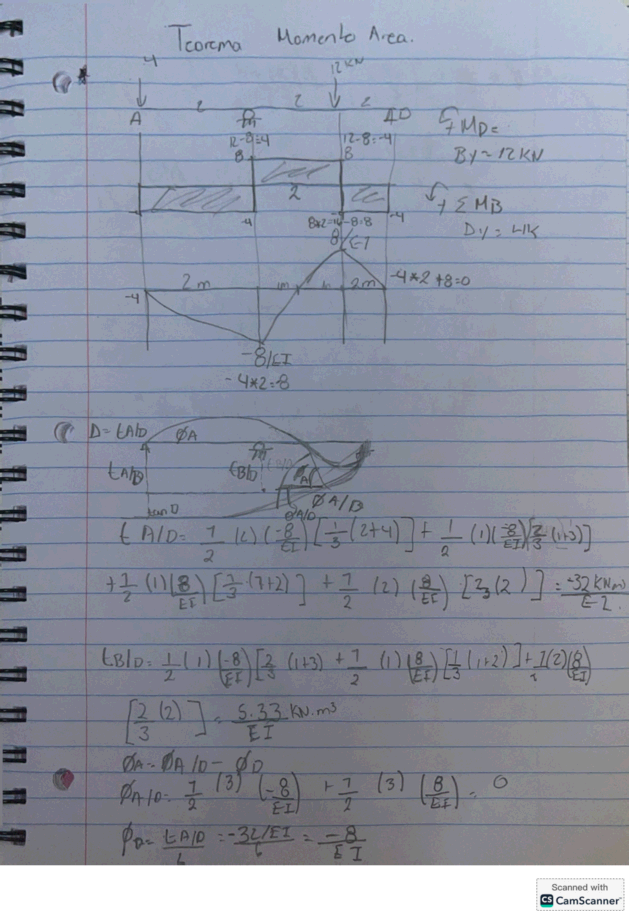 Teorema Momento Area.
4
12KN
2 2 2
A D
12-8=4 12-8=-4
8 8
2
-4 -4
8*2=16-8=8
8/EI
↰+ MD=
By=12KN
↰+ ΣMB
Dy=4K
2m m m 2m
-4
-4*2+8=0
-8/EI
-4*2=8
D= tA/D ØA
tA/D tB/D
tan D
ØA/D ØA/B
t A/D= 1/2 (2) (-8/EI) [1/3 (2+4)] + 1/2 (1) (-8/EI) [2/3 (1+3)]
+ 1/2 (1) (8/EI) [1/3 (1+2)] + 1/2 (2) (8/EI) [2/3 (2)] = -32 KNm³/EI
tB/D= 1/2 (1) (-8/EI) [2/3 (1+3) + 1/2 (1) (8/EI) [1/3 (1+2)] + 1/2 (2) (8/EI)
[2/3 (2)] = 5.33 KN.m³/EI
ØA=ØA/D - ØD
ØA/D= 1/2 (3) (-8/EI) + 1/2 (3) (8/EI) = 0
ØD= tA/D/L = -32/EI/6 = -8/EI
Scanned with
CS CamScanner